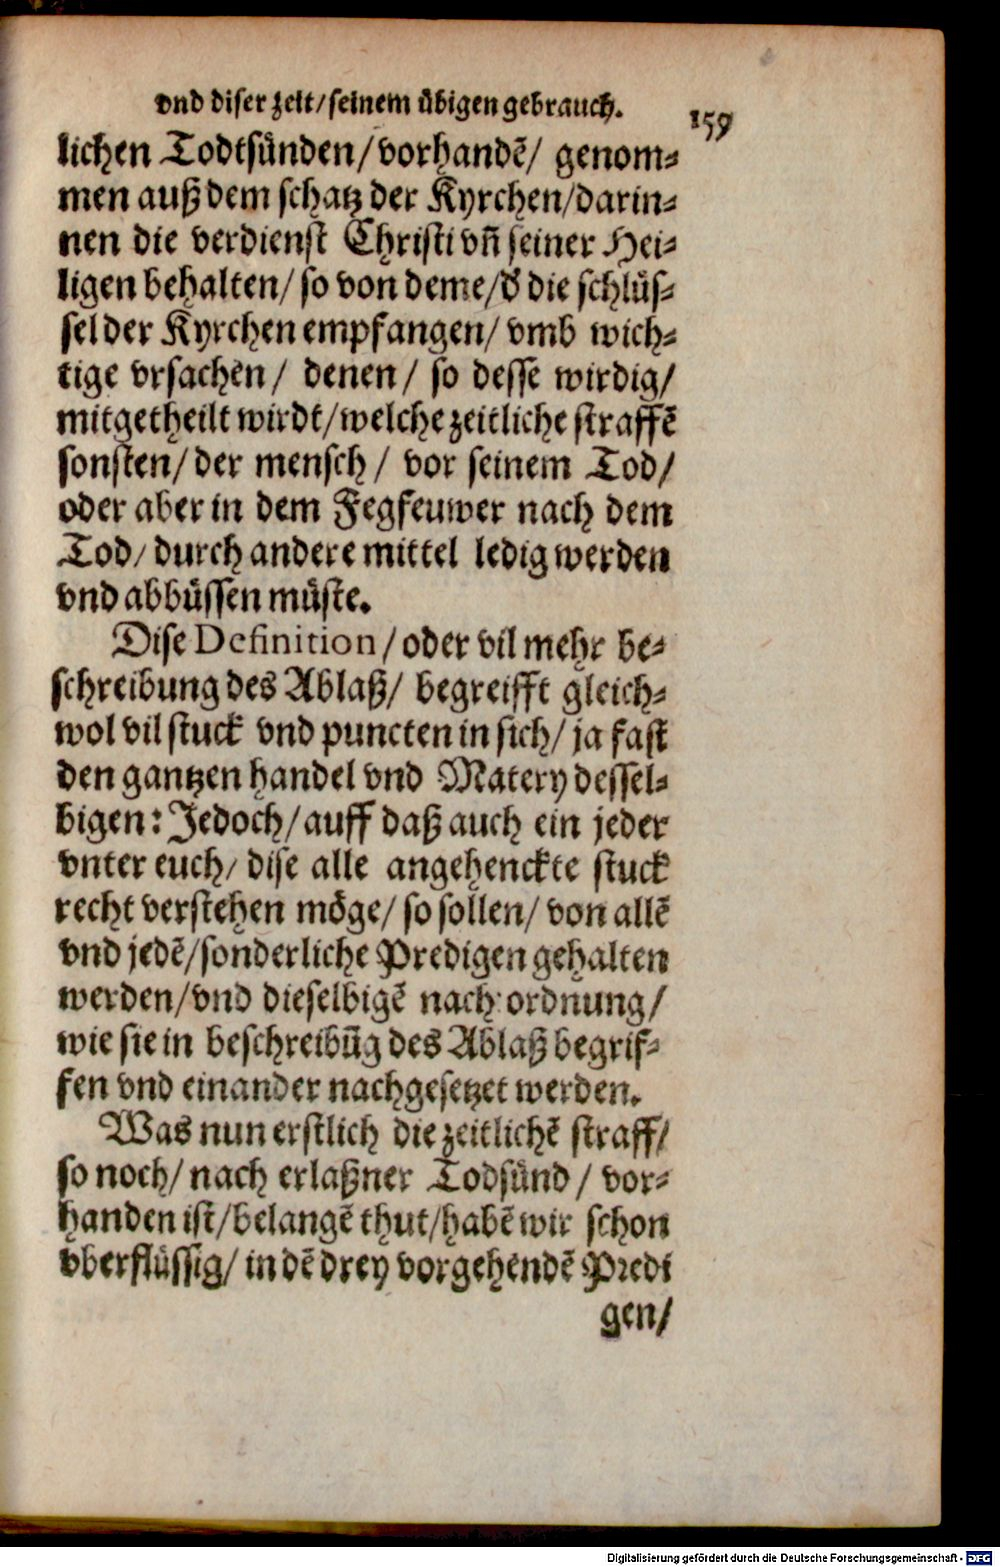 vnd diser zeit/seinem übigen gebrauch. 159
lichen Todtsünden/vorhandẽ/ genom⸗
men auß dem schatz der Kyrchen/darin⸗
nen die verdienst Christi vñ seiner Hei⸗
ligen behalten/ so von deme/ď die schlüs⸗
sel der Kyrchen empfangen/ vmb wich⸗
tige vrsachen/ denen/ so desse wirdig/
mitgetheilt wirdt/welche zeitliche straffẽ
sonsten/ der mensch/ vor seinem Tod/
oder aber in dem Fegfeuwer nach dem
Tod/ durch andere mittel ledig werden
vnd abbüssen müste.
Dise Definition/oder vil mehr be⸗
schreibung des Ablaß/ begreifft gleich⸗
wol vil stuck vnd puncten in sich/ ja fast
den gantzen handel vnd Matery dessel⸗
bigen: Jedoch/auff daß auch ein jeder
vnter euch/ dise alle angehenckte stuck
recht verstehen möge/ so sollen/ von allẽ
vnd jedẽ/sonderliche Predigen gehalten
werden/vnd dieselbigẽ nach ordnung/
wie sie in beschreibũg des Ablaß begrif⸗
fen vnd einander nachgesetzet werden.
Was nun erstlich die zeitlichẽ straff/
so noch/ nach erlaßner Todsünd/ vor⸗
handen ist/belangẽ thut/habẽ wir schon
vberflüssig/ in dẽ drey vorgehendẽ Predi
gen/
Digitalisierung gefördert durch die Deutsche Forschungsgemeinschaft - DFG